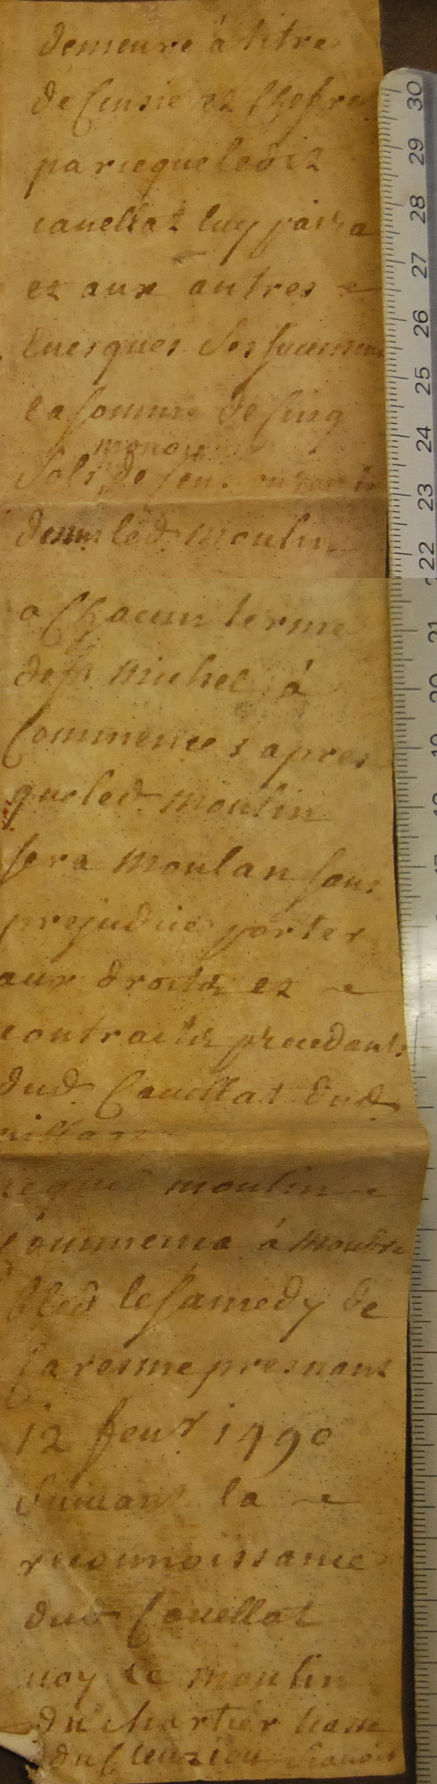 demeure á titre
de Censie et Chefre
par ce que led
Cauellat luy paira
et aux autres
Euesques ses successeurs
la somme de sinq
monoye
Sols de
dessus led moulin
a Chacun terme
de St Michel á
Commencer apres
que led moulin
sera moulan sans
prejudice porter
aux droits et
contracts precedants
dud. Cauellat dud.
moulin
commenca á moudre
bled le samedy de
Caresme presnant
12 feur 1490
Suivant la
reconnoissance
dud Cauellat
voy le moulin
du chartier liasse
du Cleuziou